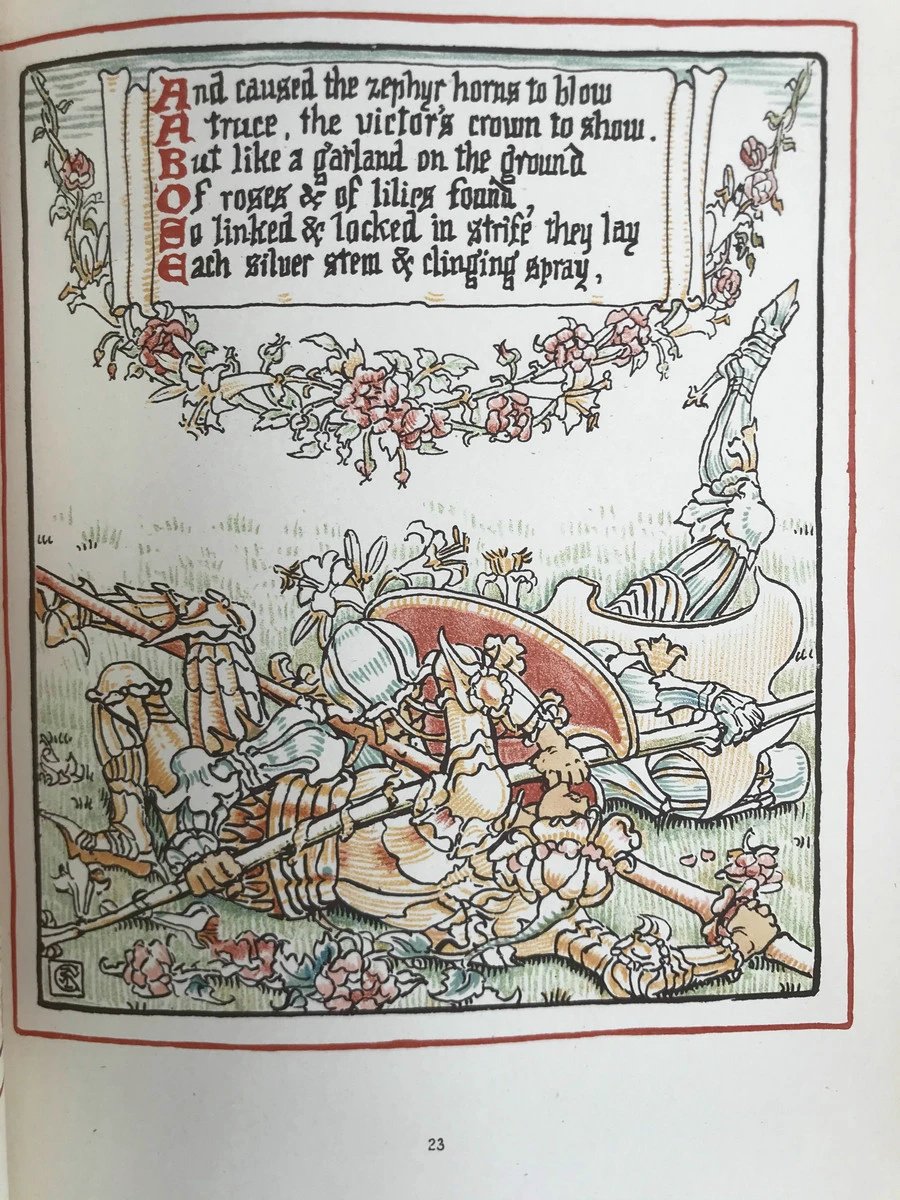 And caused the zephyr horns to blow
A truce, the victor's crown to show.
But like a garland on the ground
Of roses & of lilies found,
So linked & locked in strife they lay
Each silver stem & clinging spray,
23